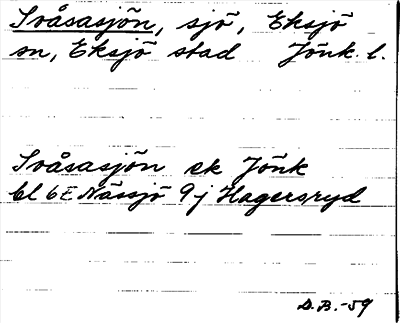 Svåsasjön, sjö, Eksjö
sn, Eksjö stad Jönk. l.
Svåsasjön ek Jönk
bl 6E Nässjö 9j Hagersryd
D.B.-59